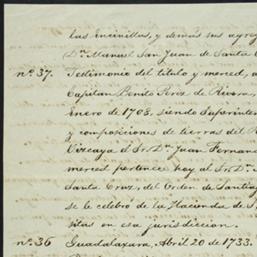 las incinillas, y demas sus agreg
Dn. Manuel San Juan de Santa C
no. 37. Testimonio del titulo y merced, a
Capitan Benito Perez de Rivera,
enero de 1703, siendo Superinte
y composiciones de tierras del R
Vizcaya el Sr. Dn. Juan Fernan
merced pertence hoy al Sr. Dn. M
Santa Cruz, del Orden de Santiag
se le celebró de la Hacienda de S
sitas en esa jurisdiccion.
no. 36 Guadalaxara, Abril 20 de 1733.